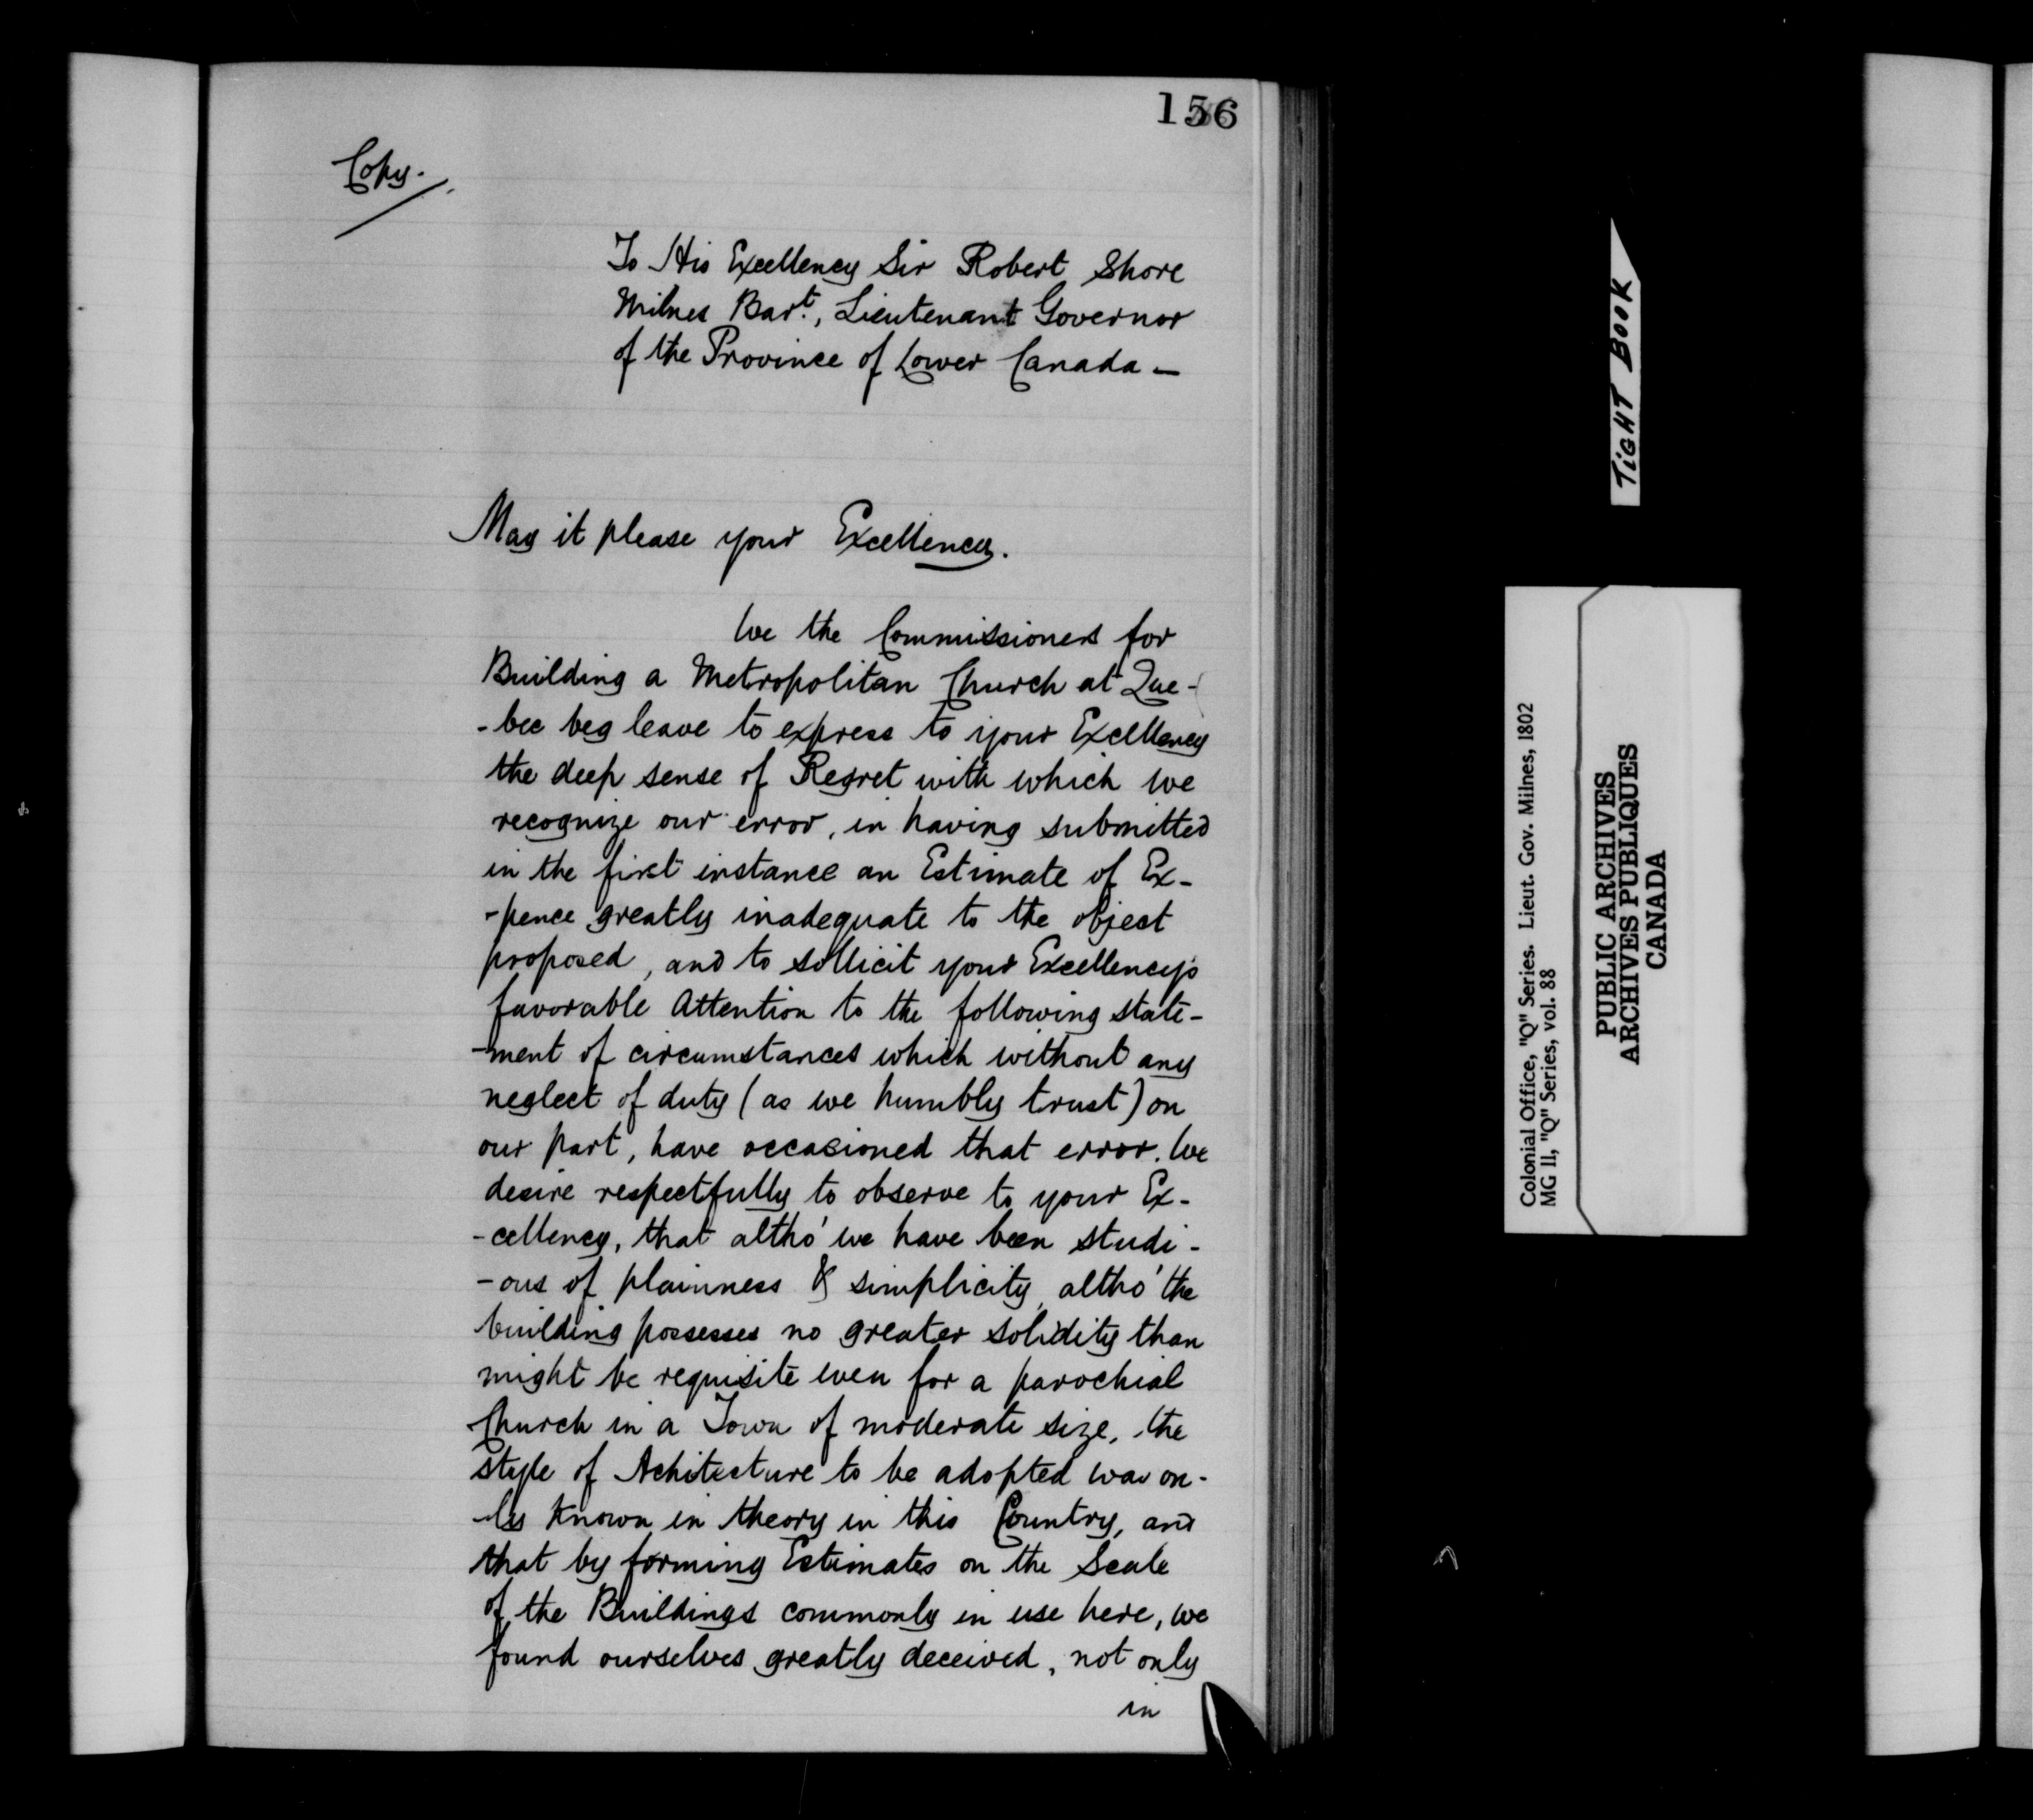 156
Copy.
To His Excellency Sir Robert Shore
Milnes Bar.t, Lieutenant Governor
of the Province of Lower Canada —
May it please your Excellency.
We the Commissioners for
Building a Metropolitan Church at Que-
-bec beg leave to express to your Excellency
the deep sense of Regret with which we
recognize our error, in having submitted
in the first instance an Estimate of Ex-
-pence greatly inadequate to the object
proposed, and to sollicit your Excellency's
favorable Attention to the following state-
-ment of circumstances which without any
neglect of duty (as we humbly trust) on
our part, have occasioned that error. We
desire respectfully to observe to your Ex-
-cellency, that altho' we have been studi-
-ous of plainness & simplicity, altho' the
building possesses no greater solidity than
might be requisite even for a parochial
Church in a Town of moderate size, the
style of Achitecture to be adopted was on-
-ly known in theory in this Country, and
that by forming Estimates on the Scale
of the Buildings commonly in use here, we
found ourselves greatly deceived, not only
in
TIGHT BOOK
Colonial Office, "Q" Series. Lieut. Gov. Milnes, 1802
MG 11, "Q" Series, vol. 88
PUBLIC ARCHIVES
ARCHIVES PUBLIQUES
CANADA